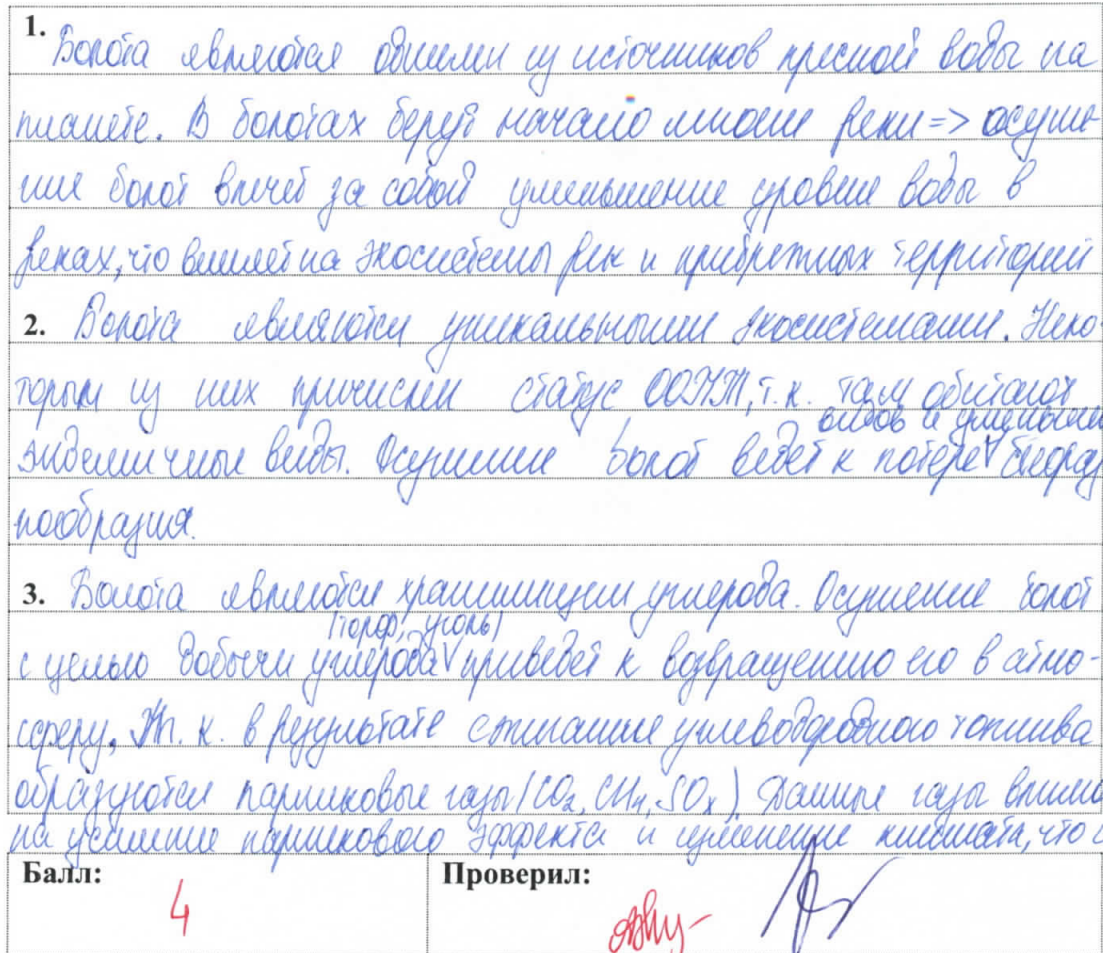 1. Болота являются одними из источников пресной воды на
планете. В болотах берут начало многие реки => осуше-
ние болот влечёт за собой уменьшение уровня воды в
реках, что влияет на экосистемы рек и прибрежных территорий
2. Болота являются уникальными экосистемами. Неко-
торым из них причислен статус ООПТ, т.к. там обитают
видов и уменьшен
эндемичные виды. Осушение болот ведёт к потере V биораз
нообразия.
3. Болота являются хранилищем углерода. Осушение болот
(торф, уголь)
с целью добычи углерода V приведёт к возвращению его в атмо-
сферу, т.к. в результате сжигания углеводородного топлива
образуются парниковые газы (CO₂, CH₄, SOₓ). Данные газы влияю
на усиление парникового эффекта и изменение климата, что
Балл:
4
Проверил: